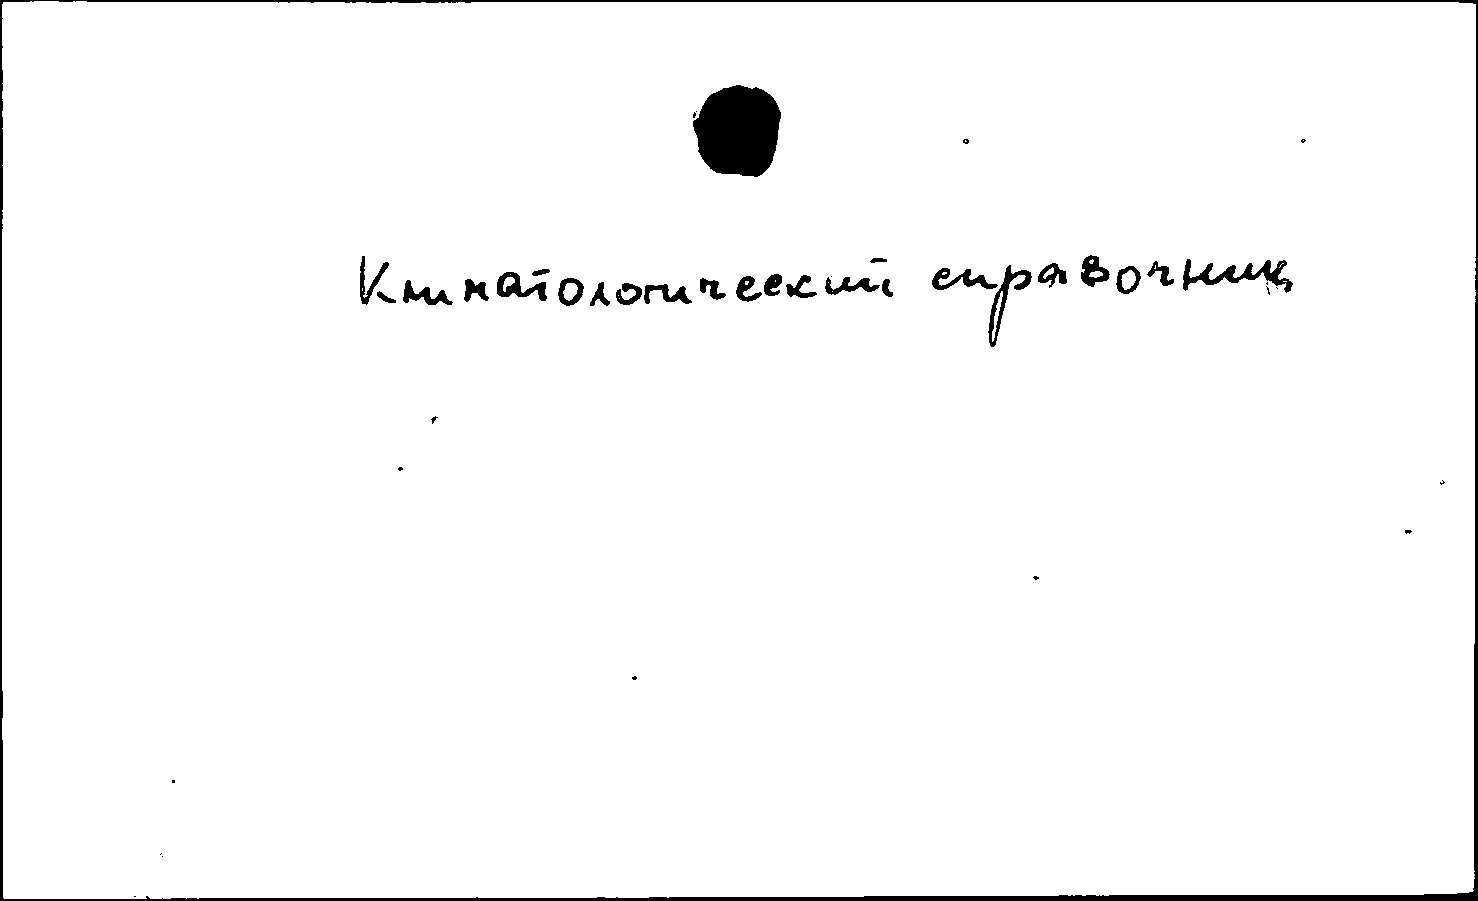 Климатологический справочник